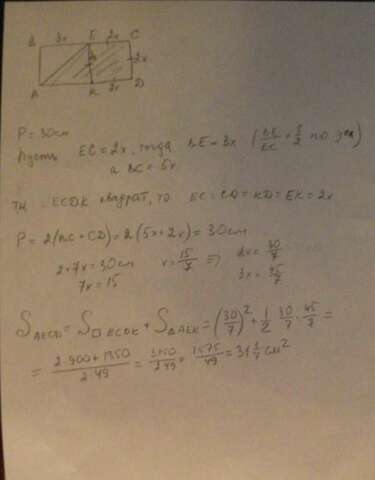 B 3x E 2x C
2x
A K 2x D
P = 30см
Пусть EC = 2x, тогда BE = 3x (BE/EC = 3/2 по усл)
а BC = 5x
Тк ECDK квадрат, то EC = CD = KD = EK = 2x
P = 2(BC + CD) = 2(5x + 2x) = 30см
2 · 7x = 30см x = 15/7 ⇒ 2x = 30/7
7x = 15 3x = 45/7
S AECD = S □ ECDK + S ΔAEK = (30/7)² + 1/2 · 30/7 · 45/7 =
= (2·900 + 1350)/(2·49) = 3150/(2·49) = 1575/49 = 31 1/7 см²